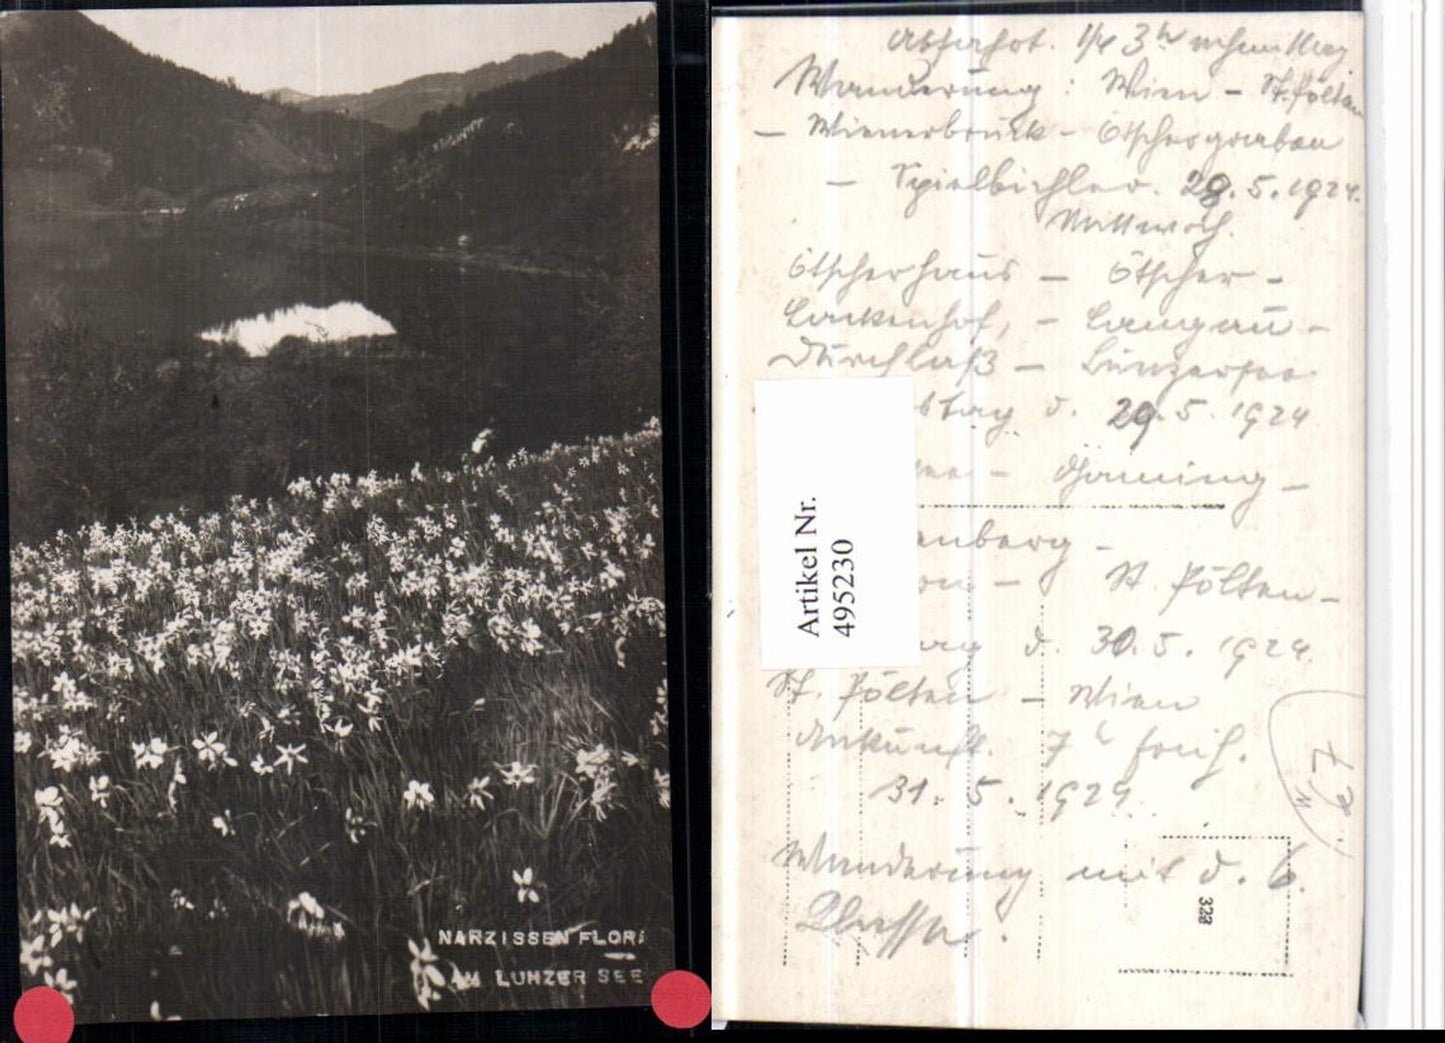 NARZISSEN FLOR
AM LUNZER SEE
Abfahrt. 1/4 3h
Wanderung: Wien - St. Pölten
- Wienerbruck - Ötschergraben
- Spielbichler. 28. 5. 1924.
Mittwoch.
Ötscherhaus - Ötscher -
Lackenhof, - Langau -
Durchlaß - Lunzersee
d. 29. 5. 1924
- Gaming -
enberg -
- St. Pölten -
d. 30. 5. 1924.
St. Pölten - Wien
Ankunft. 7h früh.
31. 5. 1924.
Wanderung mit d. 6.
Klasse.
Artikel Nr.
495230
323